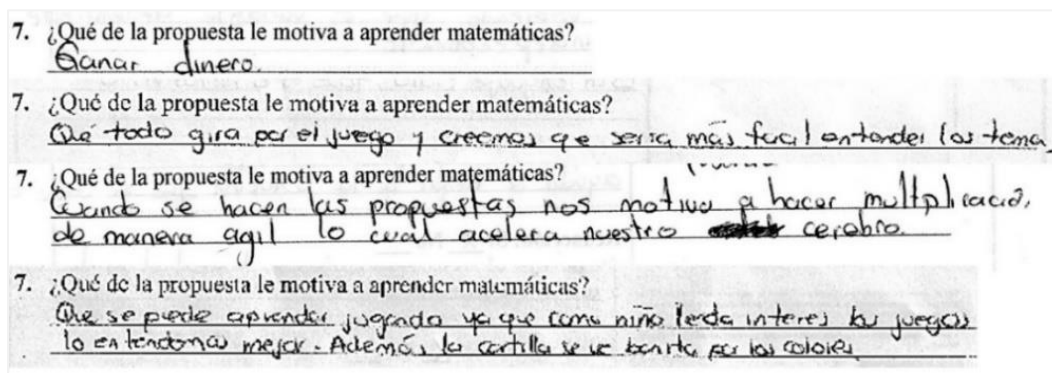 7. ¿Qué de la propuesta le motiva a aprender matemáticas?
Ganar dinero.
7. ¿Qué de la propuesta le motiva a aprender matemáticas?
Que todo gira por el juego y creemos qe seria más facil entender los tema
7. ¿Qué de la propuesta le motiva a aprender matemáticas?
Cuando se hacen las propuestas nos motiva a hacer multiplicació,
de manera agil lo cual acelera nuestro cerebro.
7. ¿Qué de la propuesta le motiva a aprender matemáticas?
Que se puede aprender jugando ya que como niño le da interes los juegos
lo entendemos mejor. Además la cartilla se ve bonita por los colores